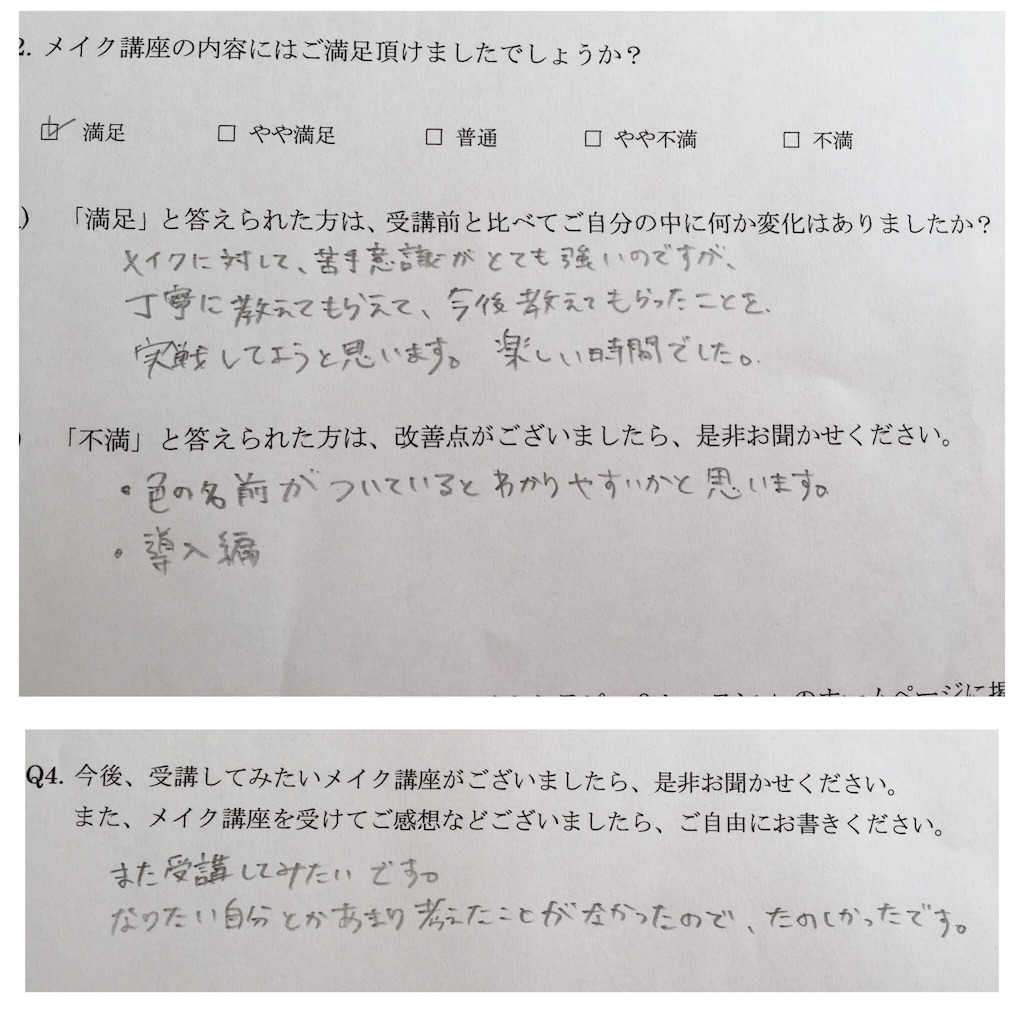 2. メイク講座の内容にはご満足頂けましたでしょうか？
☑ 満足 □ やや満足 □ 普通 □ やや不満 □ 不満
) 「満足」と答えられた方は、受講前と比べてご自分の中に何か変化はありましたか？
メイクに対して、苦手意識がとても強いのですが、
丁寧に教えてもらえて、今後教えてもらったことを、
実戦してようと思います。 楽しい時間でした。
) 「不満」と答えられた方は、改善点がございましたら、是非お聞かせください。
・色の名前がついているとわかりやすいかと思います。
・導入編
のホームページに掲
Q4. 今後、受講してみたいメイク講座がございましたら、是非お聞かせください。
また、メイク講座を受けてご感想などございましたら、ご自由にお書きください。
また受講してみたいです。
なりたい自分とかあまり考えたことがなかったので、たのしかったです。